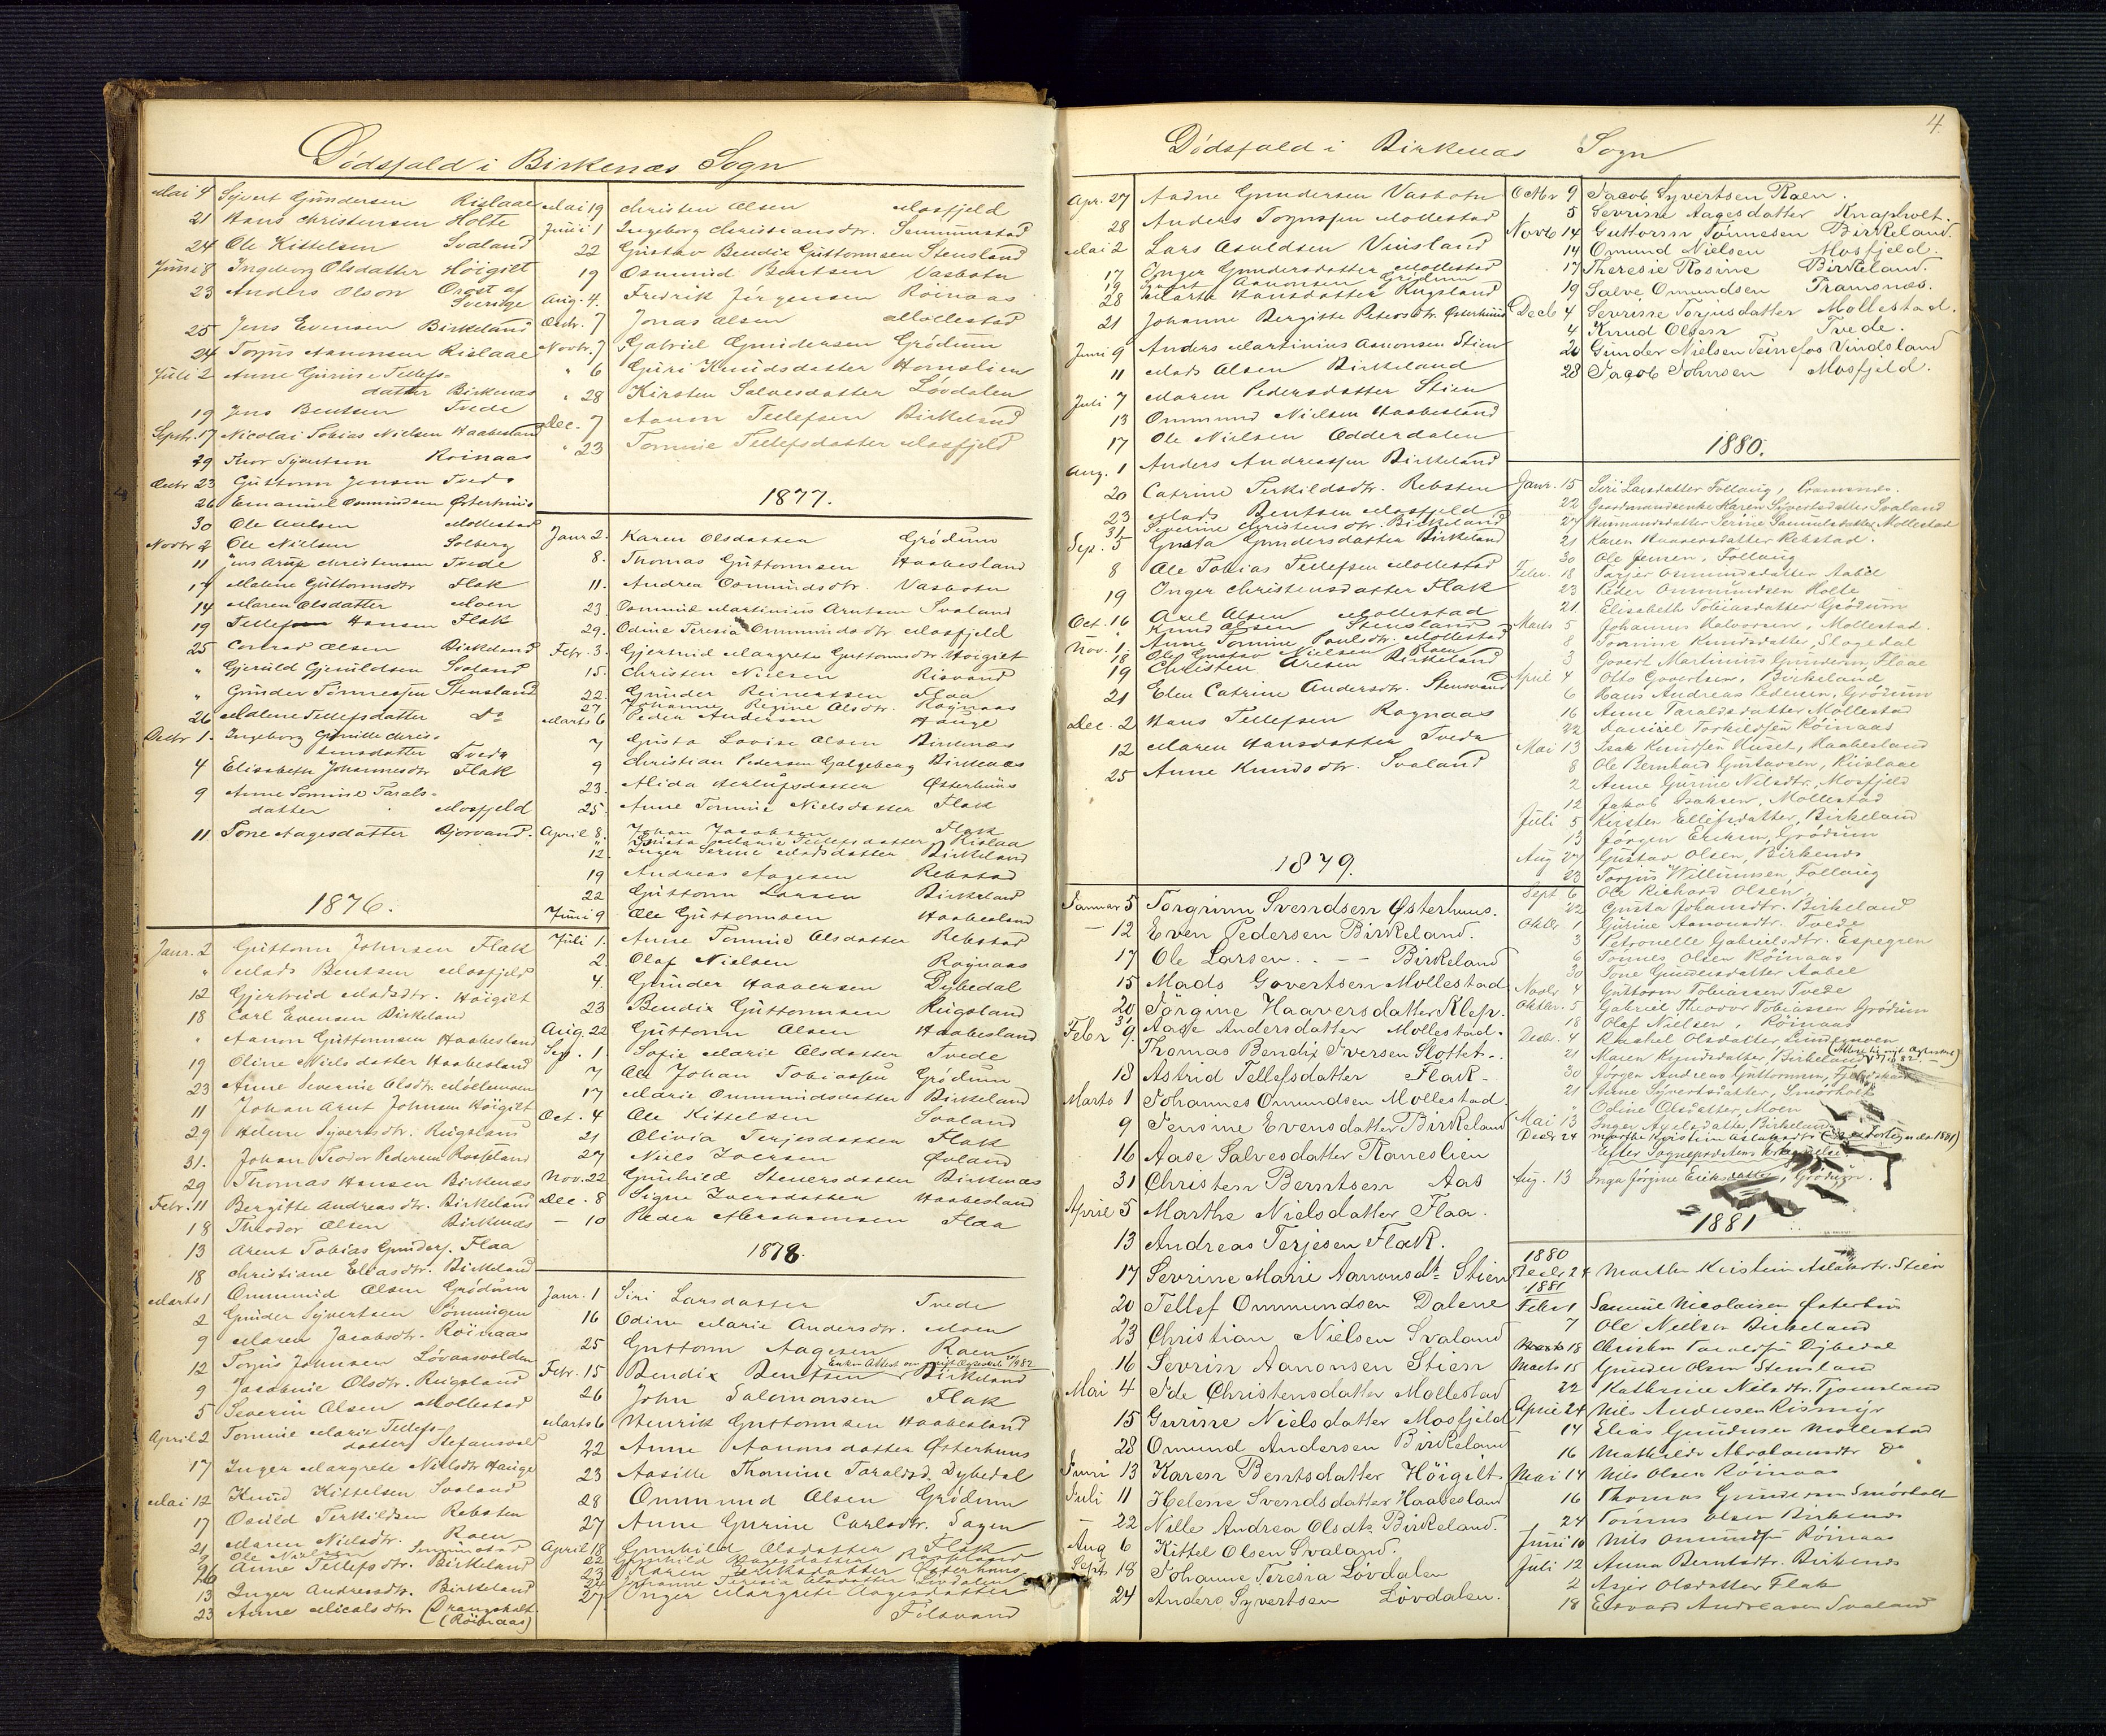 Dödsfald i Birkenæs Sogn
Mai 4 Syvert Gundersen Rislaae
21 Hans Christensen Holte
24 Ole Kittelsen Svaland
Juni 8 Ingeborg Olsdatter Höigilt
23 Anders Olson Orost af
Sverige
25 Jens Evensen Birkeland
24 Torjus Aanonsen Rislaae
Juli 2 Anne Gurine Tellefs-
datter Birkenæs
19 Jens Bentsen Tvede
Septr. 17 Nicolai Tobias Nielsen Haabesland
29 Thor Syvertsen Röinaas
Octbr 23 Guttorm Jensen Tvede
26 Emanuel Ommundsen Østerhuus
30 Ole Mollestad
Novbr 2 Ole Nielsen Solberg
11 Jens Arup Christensen Tvede
17 Malene Guttormsdtr Flak
14 Maren Olsdatter Moen
19 Tellef Hansen Flak
25 Conrad Olsen Birkeland
" Gjeruld Gjeruldsen Svaland
" Gunder Tönnessen Stensland
26 Malene Tellefsdatter Do
Decbr 1. Ingeborg Gunille Chris-
tensdatter Tvede
4 Elisabeth Johannesdtr Flak
9 Anne Tomine Tarals-
datter Mosfjeld
11 Tone Aagesdatter Bjorvand.
1876.
Janr. 2 Guttorm Johnsen Flak
" Mads Bentsen Mosfjeld
12 Gjertrud Madsdtr. Höigilt
18 Carl Evensen Birkeland
" Aanon Guttormsen Haabesland
19 Oline Nielsdatter Haabesland
23 Anne Severine Olsdtr Möllemoen
11 Johan Arnt Johnsen Höigilt
29 Helene Syvertsdtr. Rugsland
31. Johan Teodor Pedersen Rosseland
29 Thomas Hansen Birkenæs
Febr. 11 Bergitte Andreasdtr. Birkeland
18 Theodor Olsen Birkenæs
13 Arent Tobias Gunders. Flaa
18 Christiane Eliasdtr. Birkeland
Marts 1 Ommund Olsen Grödum
2 Gunder Syvertsen
9 Maren Jacobsdtr. Röinaas
12 Torjus Johnsen Lövaasvolden
9 Jacobine Olsdtr. Rugsland
5 Severin Olsen Mollestad
April 2 Tomine Marie Tellefs-
datter
17 Inger Margrete Nielsdtr Hauge
Mai 12 Knud Kittelsen Svaland
17 Osuld Terkildsen Rebsten
21 Maren Nielsdtr. Raen
Ole Nielsen
26 Anne Tellefsdtr. Birkeland
13 Inger Andreasdtr. Birkeland
23 Anne Micalsdtr. (Drangsholt
(Röinaas)
Mai 19 Christen Olsen Mosfjeld
Juni 1 Ingeborg Christiansdtr. Senumstad
22 Gustav Bendix Guttormsen Stensland
19 Osmund Bentsen Vasbotn
Aug. 4. Fredrik Jörgensen Röinaas
Octbr. 7 Jonas Olsen Mollestad
Novbr. 7 Gabriel Gundersen Grödum
" 6 Guri Knudsdatter Hornslien
" 28 Kirsten Salvesdatter Lövdalen
Dec. 7 Aanon Tellefsen Birkeland
" 23 Tomine Tellefsdatter Mosfjeld
1877.
Janr 2. Karen Olsdatter Grödum
8. Thomas Guttormsen Haabesland
11. Andrea Osmundsdtr. Vasbotn
23. Martinius Arntsen Svaland
29. Odine Teresia Ommundsdtr Mosfjeld
Febr. 3. Gjertrud Margrete Guttormsdtr. Höigilt
15. Christen Nielsen Risvand
22. Gunder Reinertsen Flaa
27. Johanne Regine Olsdtr. Rognaas
Marts 6 Peder Andersen Hauge
7 Gusta Lovise Olsen Birkenæs
9 Christian Pedersen Galgeberg Birkenæs
23. Alida Herlufsdatter Østerhuus
25. Anne Tomine Nielsdatter Flak
April 8. Johan Jacobsen Flak
" Marie Tellefsdatter Rislaa
12. Inger Serine Madsdatter Birkeland
19 Andreas Aagesen Rebstad
22 Guttorm Larsen Birkeland
Juni 9 Ole Guttormsen Haabesland
Juli 1. Anne Tomine Olsdatter Rebstad
2 Olaf Nielsen Rognaas
4. Gunder Haaversen Dybedal
23 Bendix Guttormsen Rugsland
Aug. 22 Guttorm Olsen Haabesland
Sep. 1. Sofie Marie Olsdatter Tvede
7 Ole Johan Tobiassen Grödum
17 Marie Ommundsdatter Birkeland
Oct. 4 Ole Kittelsen Svaland
21 Olivia Terjesdatter Flak
27 Niels Iversen Øvland
Nov. 22 Gunhild Steversdatter Birkenæs
Dec. 8 Signe Iversdatter Haabesland
— 10 Peder Abrahamsen Flaa
1878.
Janr. 1 Siri Larsdatter Tvede
16 Odine Marie Andersdtr. Moen
25 Guttorm Aagesen Raen
Febr. 15 Bendix Bentsen Birkeland
26 John Salomonsen Flak
Marts 6 Henrik Guttormsen Haabesland
22 Anne Aanonsdatter Østerhuus
23 Aasille Thomine Taraldsd. Dybedal
28 Ommund Olsen Grödum
27 Anne Gurine Carlsdtr. Sagen
April 18 Gunhild Olsdatter Flak
22 Gunhild Aagesdatter Rosseland
23 Karen Eriksdatter Østerhuus
24 Johanne Teresia Olsdatter Lövdalen
27. Inger Margrete Aagesdatter
Filsvand
4.
Dödsfald i Birkenæs Sogn
Apr. 27 Aadne Gundersen Vasbotn
28 Anders Mollestad
Mai 2 Lars Osuldsen Vinsland
17 Inger Gundersdatter Mollestad
19 Syvert Aanonsen Grödum
28 Marte Hansdatter Rugsland
21 Johanne Bergitte Petersdtr. Østerhuus
Juni 9 Anders Martinius Aanonsen Stien
11 Mads Olsen Birkeland
Juli 7 Maren Pedersdatter Stien
13 Ommund Nielsen Haabesland
17 Ole Nielsen Odderdalen
Aug. 1 Anders Andreassen Birkeland
20 Catrine Terkildsdtr. Rebsten
23 Mads Bentsen Mosfjeld
31 Severine Christensdtr. Birkeland
Sep. 5 Gusta Gundersdatter Birkeland
8 Ole Tobias Tellefsen Mollestad
19 Inger Christensdatter Flak
Oct. 16 Axel Olsen Mollestad
" Knud Olsen Stensland
Nov. 1. Anne Tomine Paulsdtr. Mollestad
18 Ole Gustav Nielsen Raen
19 Christen Aresen Birkeland
21 Elen Catrine Andersdtr. Stensvand
Dec. 2 Hans Tellefsen Rognaas
12 Maren Hansdatter Tvede
25 Anne Knudsdtr. Svaland
1879.
Januar 5 Torgrim Svendsen Østerhuus.
— 12 Even Pedersen Birkeland.
17 Ole Larsen . . — — Birkeland
15 Mads Govertsen Mollestad
20 Törgine Haaversdatter Klep.
31 Aase Andersdatter Mollestad.
Febr 9. Thomas Bendix Iversen Slottet.
18 Astrid Tellefsdatter Flak
Marts 1 Johannes Omundsen Mollestad
9 Jensine Evensdatter Birkeland
16 Aase Salvesdatter Raneslien
31 Christen Berntsen Aas
April 5 Marthe Nielsdatter Flaa.
13 Andreas Terjesen Flak.
17 Sevrine Marie Aanonsdt. Stien
20 Tellef Ommundsen Dalene
23 Christian Nielsen Svaland
16 Sevrin Aanonsen Stien
Mai 4 Ide Christensdatter Mollestad
15 Gurine Nielsdatter Mosfjeld
28 Omund Andersen Birkeland
Juni 13 Karen Berntsdatter Höigilt
Juli 11 Helene Svendsdatter Haabesland
— 22 Nille Andrea Olsdtr Birkeland.
Aug 6 Kittel Olsen Svaland.
Sept 18 Johanne Teresia Lövdalen
24 Anders Syvertsen Lövdalen.
Octbr 9 Jacob Syvertsen Raen.
5 Sevrine Aagesdatter Knapholt.
Novb 14 Guttorm Tönnesen Birkeland.
14 Omund Nielsen Mosfjeld.
17 Theresie Rosine Birkeland.
19 Salve Omundsen Tramsnæs.
Decb 4 Sevrine Torjusdatter Mollestad.
4 Knud Olsen Tvede.
20 Gunder Nielsen Teinefos Vindsland
28 Jacob Johnsen Mosfjeld.
1880.
Janr. 15 Siri Larsdatter Follaug,
22 Gaardmandsenke Karen Syvertsdatter Svaland
27 Huusmandsdatter Serine Samuelsdatter Mollestad
21 Karen Haaversdatter Rebstad.
30 Ole Jensen, Follaug
Febr. 18 Tarjer Osmundsdatter Aabel
23 Peder Ommundsen Holte
21 Elisabeth Tobiasdatter Grödum
Marts 5 Johannes Halvorsen, Mollestad.
8 Tomine Knudsdatter, Slogedal
3 Govert Martinius Gundersen, Flaae
April 4 Otto Govertsen, Birkeland
6 Hans Andreas Pedersen, Grödum
16 Anne Taraldsdatter Mollestad
22 Daniel Torkildsen Röinaas
Mai 13 Isak Knudsen Huset, Haabesland
8 Ole Bernhard Gustavsen, Rislaae
2 Anne Gurine Nilsdtr., Mosfjeld
12 Jakob Isaksen, Mollestad
Juli 5 Kirsten Ellefsdatter, Birkeland
13 Jörgen Eriksen, Grödum
Aug 27 Gustav Olsen, Birkenæs
23 Torjus Willumsen, Follaug
Sept 6 Ole Richard Olsen,
22 Gusta Johansdtr. Birkeland
Oktbr 1 Gurine Aanonsdtr. Tvede
3 Petronelle Gabrielsdtr. Espegren
6 Tönnes Olsen Röinaas
30 Tone Gundersdatter Aabel
Novbr. 4 Guttorm Tobiassen Tvede
Oktbr. 5 Gabriel Theodor Tobiassen Grödum
18 Olaf Nielsen, Röinaas
Decbr. 4 Rachel Olsdatter
21 Maren Birkeland
30 Jörgen Andreas Guttormsen,
21 Anne Syvertsdatter, Smörholt
" Odine Olsdatter, Moen
Mai 13 Inger Birkeland
Decbr 24 Marthe Kjerstin Aslaksdtr.
Efter Sogneprestens
Aug. 13 Inga Jörgine Eriksdatter, Grödum.
1881
1880
Decbr 24 Marthe Kirstine Aslaksdtr. Stien
1881
Febr 1 Samuel Nicolaisen Østerhus
7 Ole Nielsen Birkeland
18 Christen Taraldsen Dybedal
Marts 15 Gunder Olsen Stensland
22 Kathrine Nilsdtr. Tjomsland
April 24 Nils Andersen Rismyr
14 Elias Gundersen Mollestad
16 Mathilde Abrahamsdtr Do
Mai 14 Nils Olsen Röinaas
16 Thomas Gundersen Smörholt
24 Tomine Olsen Birkenæs
Juni 10 Nils Omundsen Röinaas
Juli 12 Anna Berntsdtr. Birkenæs
2 Asjer Olsdatter Flak
18 Edvard Andreasen Svaland